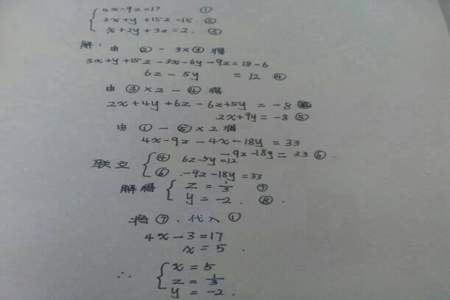 4x-9z=17 ①
3x+y+15z=18 ②
x+2y+3z=2. ③
解: 由 ②-3×③ 得
3x+y+15z-3x-6y-9z=18-6
6z-5y =12 ④
由 ③×2-④ 得
2x+4y+6z-6z+5y=-8
2x+9y=-8 ⑤
由 ①-⑤×2 得
4x-9z-4x-18y=33
-9z-18y=33 ⑥
联立 ④ 6z-5y=12
⑥ -9z-18y=33
解得 z=1/3 ⑦
y=-2. ⑧
将⑦,代入①
4x-3=17
x=5.
∴ x=5
z=1/3
y=-2.